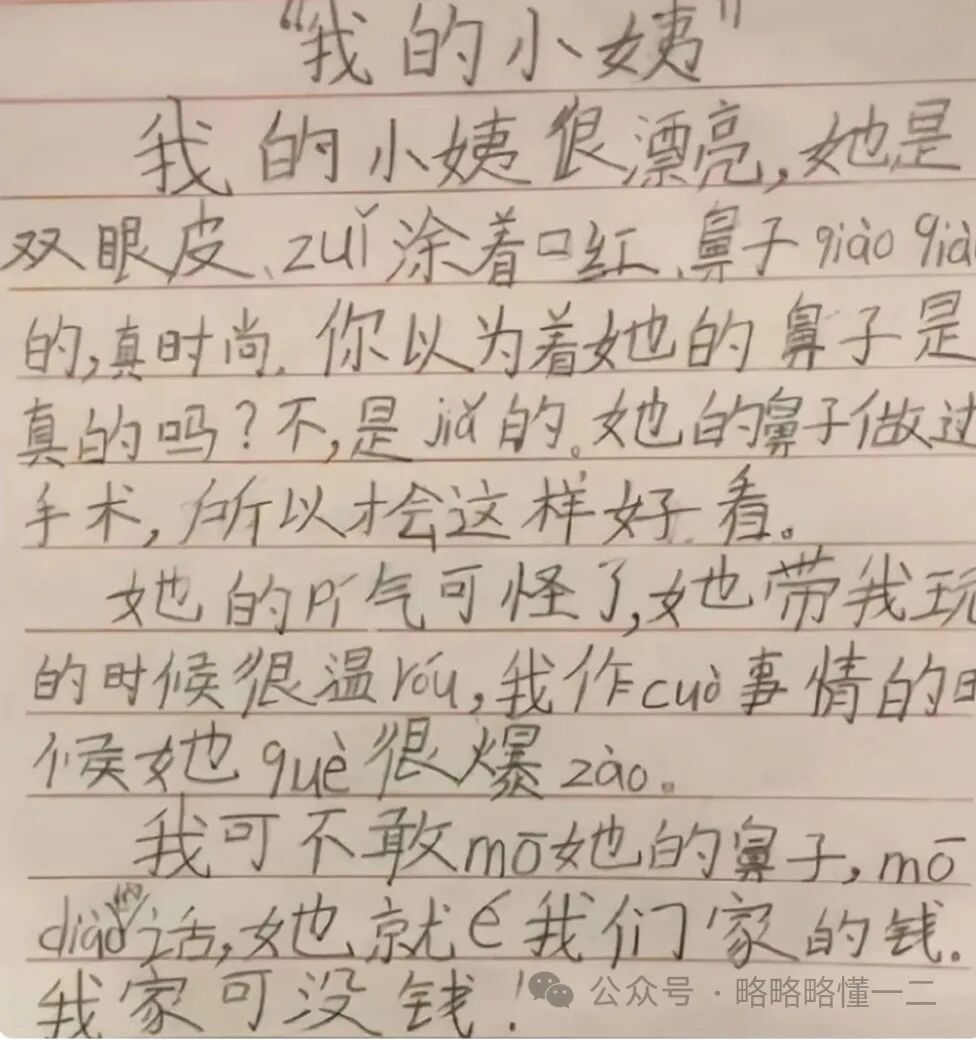 “我的小姨”
我的小姨很漂亮,她是
双眼皮、zuǐ涂着口红、鼻子qiào qià
的,真时尚.你以为着她的鼻子是
真的吗?不,是jiǎ的。她的鼻子做过
手术,所以才会这样好看。
她的pí气可怪了,她带我玩
的时候很温róu,我作cuò事情的时
候她què很爆zào。
我可不敢mō她的鼻子,mō
diào话,她就é我们家的钱.
我家可没钱!
公众号·略略略懂一二